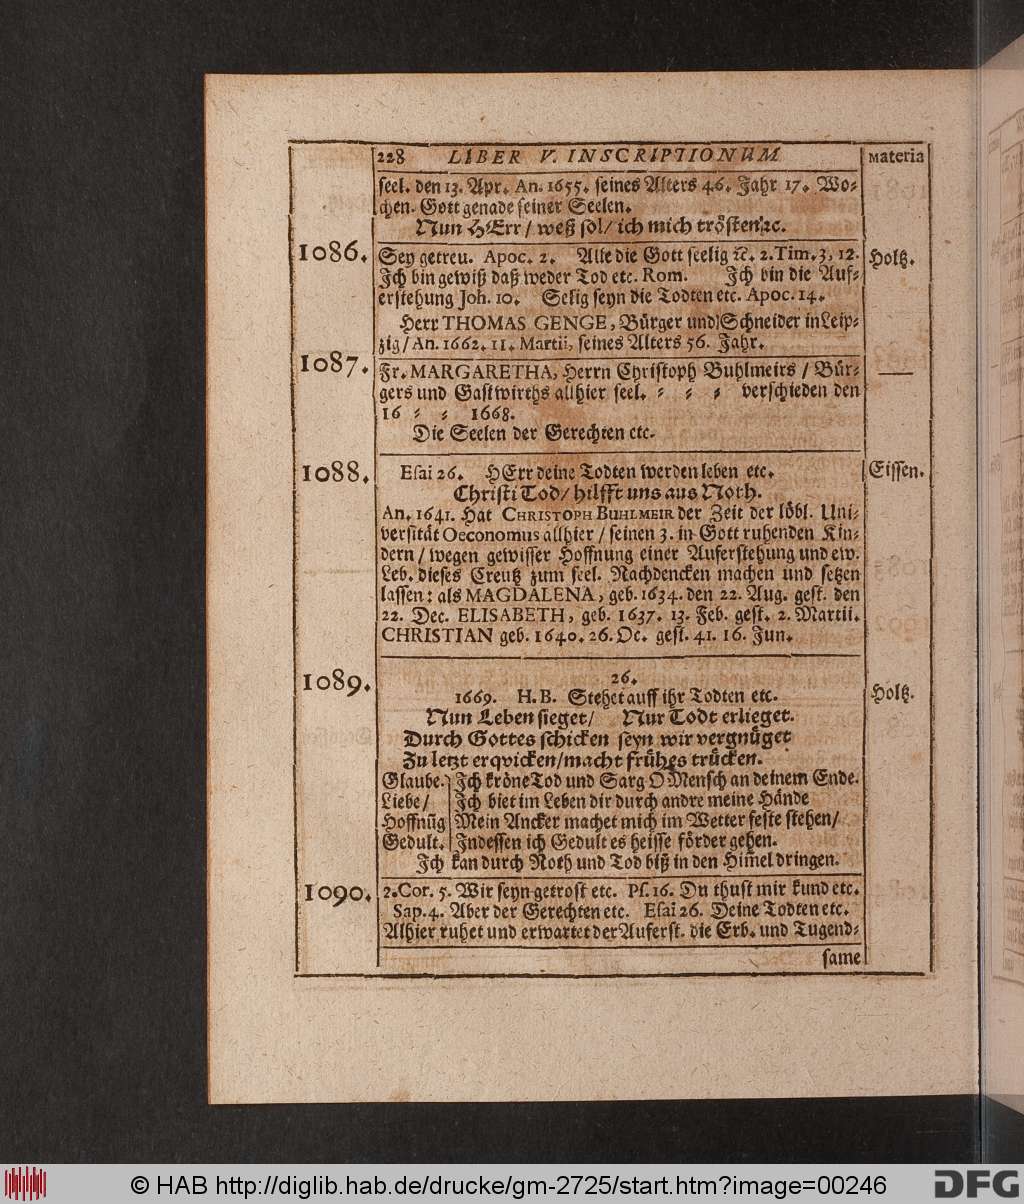 228 LIBER V. INSCRIPTIONUM Materia
seel. den 13. Apr. An. 1655. seines Alters 46. Jahr 17. Wo-
chen. Gott genade seiner Seelen.
Nun HErr / weß sol / ich mich trösten ꝛc.
1086. Sey getreu. Apoc. 2. Alle die Gott seelig ꝛc. 2. Tim. 3, 12. Holtz.
Ich bin gewiß daß weder Tod etc. Rom. Ich bin die Auf-
erstehung Joh. 10. Selig seyn die Todten etc. Apoc. 14.
Herr THOMAS GENGE, Bürger und Schneider in Leip-
zig / An. 1662. 11. Martii, seines Alters 56. Jahr.
1087. Fr. MARGARETHA, Herrn Christoph Buhlmeirs / Bür- —
gers und Gastwirths allhier seel. - - - verschieden den
16 - - 1668.
Die Seelen der Gerechten etc.
1088. Esai 26. HErr deine Todten werden leben etc. Eissen.
Christi Tod / hilfft uns aus Noth.
An. 1641. Hat CHRISTOPH BUHLMEIR der Zeit der löbl. Uni-
versität Oeconomus allhier / seinen 3. in Gott ruhenden Kin-
dern / wegen gewisser Hoffnung einer Auferstehung und ew.
Leb. dieses Creutz zum seel. Nachdencken machen und setzen
lassen: als MAGDALENA, geb. 1634. den 22. Aug. gest. den
22. Dec. ELISABETH, geb. 1637. 13. Feb. gest. 2. Martii.
CHRISTIAN geb. 1640. 26. Oc. gest. 41. 16. Jun.
1089. 26. Holtz.
1669. H. B. Stehet auff ihr Todten etc.
Nun Leben sieget / Nur Todt erlieget.
Durch Gottes schicken seyn wir vergnüget
Zu letzt erqvicken / macht frühes trücken.
Glaube. Ich kröne Tod und Sarg O Mensch an deinem Ende.
Liebe / Ich biet im Leben dir durch andre meine Hände
Hoffnũg Mein Ancker machet mich im Wetter feste stehen /
Gedult. Indessen ich Gedult es heisse förder gehen.
Ich kan durch Noth und Tod biß in den Him̃el dringen.
1090. 2. Cor. 5. Wir seyn getrost etc. Ps. 16. Du thust mir kund etc.
Sap. 4. Aber der Gerechten etc. Esai 26. Deine Todten etc.
Alhier ruhet und erwartet der Auferst. die Erb. und Tugend-
same
© HAB http://diglib.hab.de/drucke/gm-2725/start.htm?image=00246
DFG